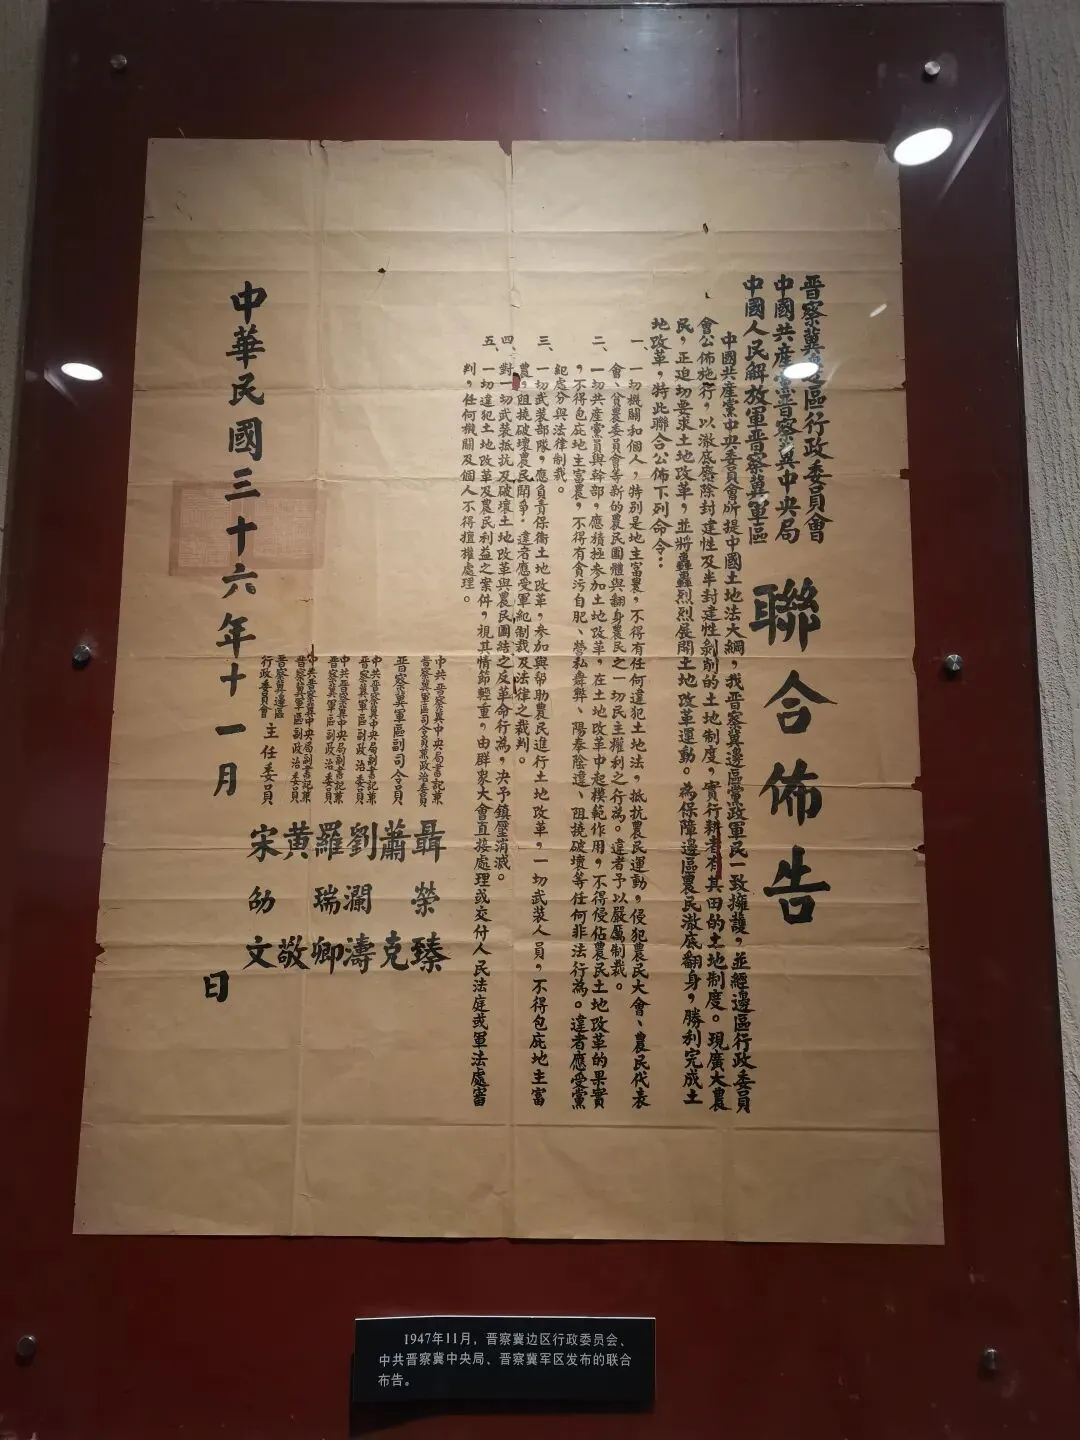 晋察冀邊區行政委員會
中國共產黨晋察冀中央局
中國人民解放軍晋察冀軍區
聯合佈告
中國共產黨中央委員會所提中國土地法大綱，我晋察冀邊區黨政軍民一致擁護，並經邊區行政委員
會公佈施行，以澈底廢除封建性及半封建性剝削的土地制度，實行耕者有其田的土地制度。現廣大農
民，正迫切要求土地改革，並將轟轟烈烈展開土地改革運動。為保障邊區農民澈底翻身，勝利完成土
地改革，特此聯合公佈下列命令：
一、一切機關和個人，特別是地主富農，不得有任何違犯土地法，抵抗農民運動，侵犯農民大會、農民代表
會、貧農委員會等新的農民團體與翻身農民之一切民主權利之行為。違者予以嚴厲制裁。
二、一切共產黨員與幹部，應積極參加土地改革，在土地改革中起模範作用，不得侵佔農民土地改革的果實
，不得包庇地主富農，不得有貪污自肥、營私舞弊、陽奉陰違、阻撓破壞等任何非法行為。違者應受黨
紀處分與法律制裁。
三、一切武裝部隊，應負責保衛土地改革，參加與幫助農民進行土地改革，一切武裝人員，不得包庇地主富
農，阻撓破壞農民鬥爭，違者應受軍紀制裁及法律之裁判。
四、對一切武裝抵抗及破壞土地改革與農民團結之反革命行為，決予鎮壓消滅。
五、一切違犯土地改革及農民利益之案件，視其情節輕重，由群衆大會直接處理或交付人民法庭或軍法處審
判，任何機關及個人不得擅權處理。
中共晋察冀中央局書記兼
晋察冀軍區司令員兼政治委員 聶榮臻
晋察冀軍區副司令員 蕭克
中共晋察冀中央局副書記兼
晋察冀軍區副政治委員 劉瀾濤
中共晋察冀中央局副書記兼
晋察冀軍區副政治委員 羅瑞卿
中共晋察冀中央局副書記兼
晋察冀軍區副政治委員 黄敬
晋察冀邊區
行政委員會 主任委員 宋劭文
中華民國三十六年十一月 日
1947年11月，晋察冀边区行政委员会、
中共晋察冀中央局、晋察冀军区发布的联合
布告。